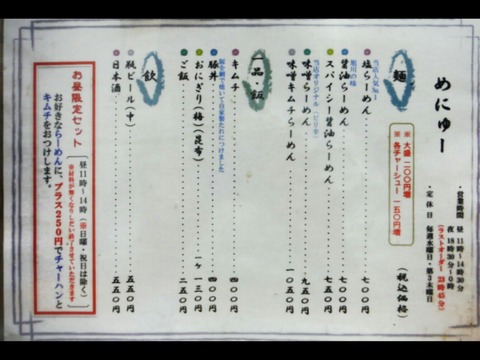 めにゅー
・営業時間 昼 11時～14時30分
夜 18時30分～0時
(ラストオーダー 23時45分)
・定休日 毎週水曜日・第3木曜日
麺
※ 大盛 一〇〇円増
※ 各チャーシュー 一五〇円増
(税込価格)
当店人気No.1
塩らーめん 七〇〇円
旭川の味
醤油らーめん 七〇〇円
スパイシー醤油らーめん 七五〇円
当店オリジナル(ピリ辛)
味噌らーめん 九五〇円
味噌キムチらーめん 一〇五〇円
一品・飯
キムチ 四〇〇円
豚丼 四〇〇円
おにぎり(梅)(昆布) 一ヶ 一三〇円
ご飯 二〇〇円
飲
瓶ビール(中) 五五〇円
日本酒 五五〇円
お昼限定セット
(昼11時～14時(※日曜・祝日は除く)
※材料が無くなりしだい終了させていただきます)
お好きならーめんに、プラス250円でチャーハンと
キムチをおつけします。